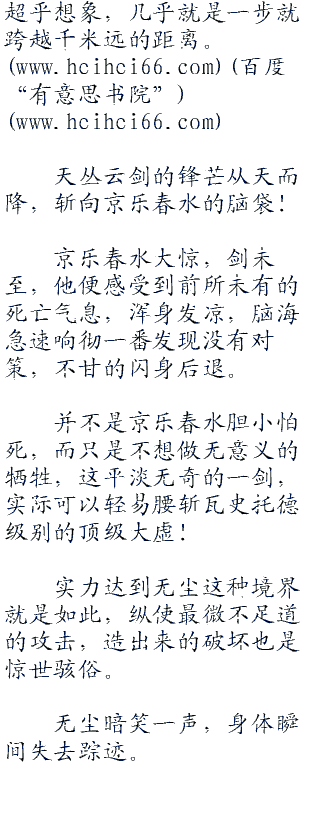 超乎想象，几乎就是一步就
跨越千米远的距离。
(www.hcihci66.com)(百度
“有意思书院”)
(www.hcihci66.com)
天丛云剑的锋芒从天而
降，斩向京乐春水的脑袋！
京乐春水大惊，剑未
至，他便感受到前所未有的
死亡气息，浑身发凉，脑海
急速响彻一番发现没有对
策，不甘的闪身后退。
并不是京乐春水胆小怕
死，而只是不想做无意义的
牺牲，这平淡无奇的一剑，
实际可以轻易腰斩瓦史托德
级别的顶级大虚！
实力达到无尘这种境界
就是如此，纵使最微不足道
的攻击，造出来的破坏也是
惊世骇俗。
无尘暗笑一声，身体瞬
间失去踪迹。